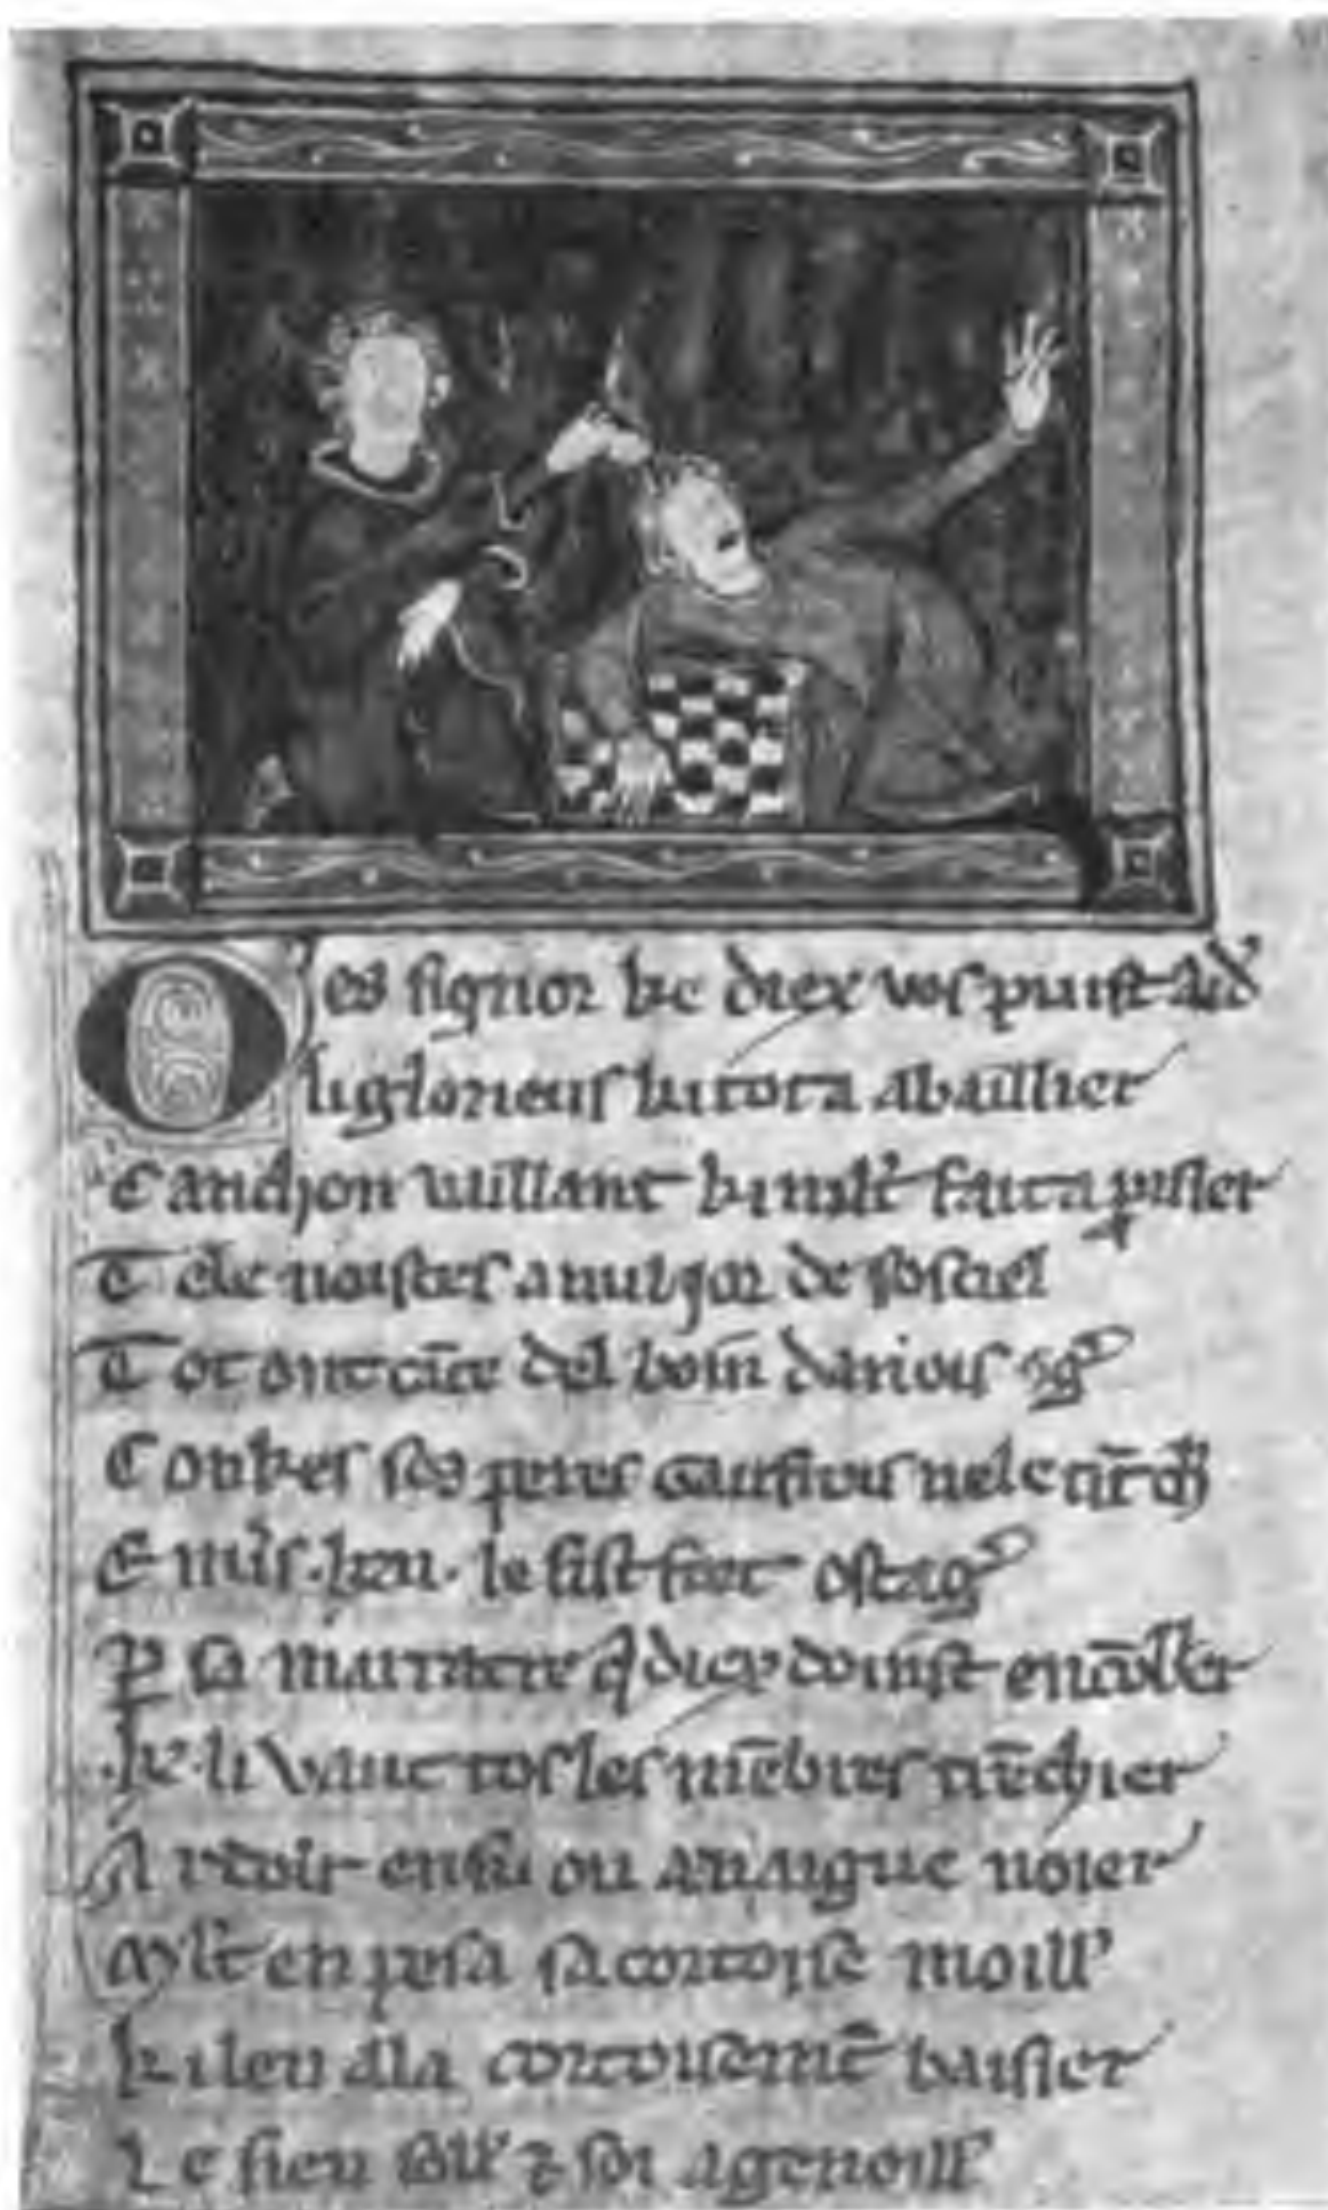 Oes signor ke diex vos puist aid'
li glorieus ki tot a abaillier
Canchon vaillant ki mlt' fait a p̱risier
T ele noistes a nul jor de sos ciel
T ot ont cāte del boin danois og'
C onkes ses peres
le fist
P sa marrastre q̄ diex doinst encōbrer
Ke li vaut tos les mēbres trēchier
A rdoir en fu ou en aigue noier
Mlt' en pesa sa cortoise moill'
Ki len ala cortoisemēt baisier
Le sien soll' ⁊ soi agenoill'